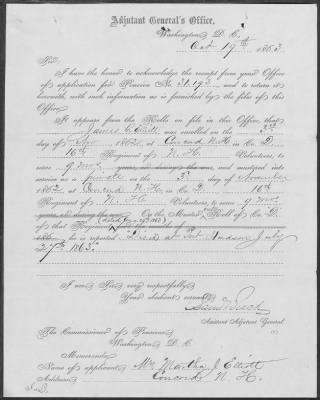 Adjutant General's Office,
Washington, D. C.
Oct 19th, 1863.
Sir:
I have the honor to acknowledge the receipt from your Office
of application for Pension No. 31.192 and to return it
herewith, with such information as is furnished by the files of this
Office.
It appears from the Rolls on file in this Office, that
James Elliott was enrolled on the 3d
day of Nov 1862, at Concord N.H. in Co. D,
16th Regiment of N. H. Volunteers, to
serve 9 mos. years, or during the war, and mustered into
service as a private on the 3d day of November
1862 at Concord N. H. in Co. D, 16th
Regiment of N. H. Volunteers, to serve 9 mos.
years, or during the war. On the Muster Roll of Co. D,
of that Regiment
he is reported Died at Port Hudson July
27th 1863.
I am, Sir, very respectfully,
Your obedient servant,
Assistant Adjutant General.
The Commissioner of Pensions,
Washington, D. C.
Memoranda:
Name of applicant, Mrs. Martha J. Elliott
Address, Concord N. H.